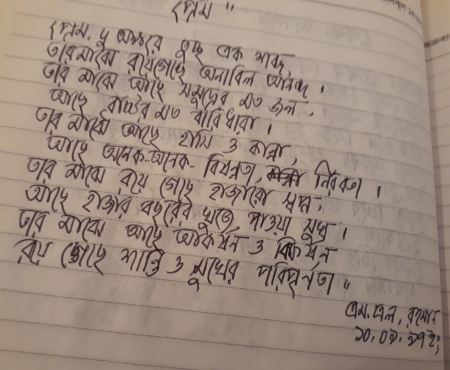 প্রেম"
প্রেম, দু অক্ষরে তুচ্ছ এক শব্দ,
তার মাঝে রয়েগেছে অনাবিল আনন্দ।
তার মাঝে আছে সমুদ্রের মত জল,
আছে বৃষ্টির মত বারিধারা।
তার মাঝে আছে হাসি ও কান্না,
আছে অনেক-অনেক- বিষন্নতা, নিরবতা।
তার মাঝে রয়ে গেছে হাজারো স্বপ্ন,
আছে হাজার বছরের খুজে পাওয়া সুখ।
তার মাঝে আছে আকর্ষন ও বিকর্ষন
রয়ে গেছে শান্তি ও সুখের পরিপূর্নতা"
এম. এল. রহমান